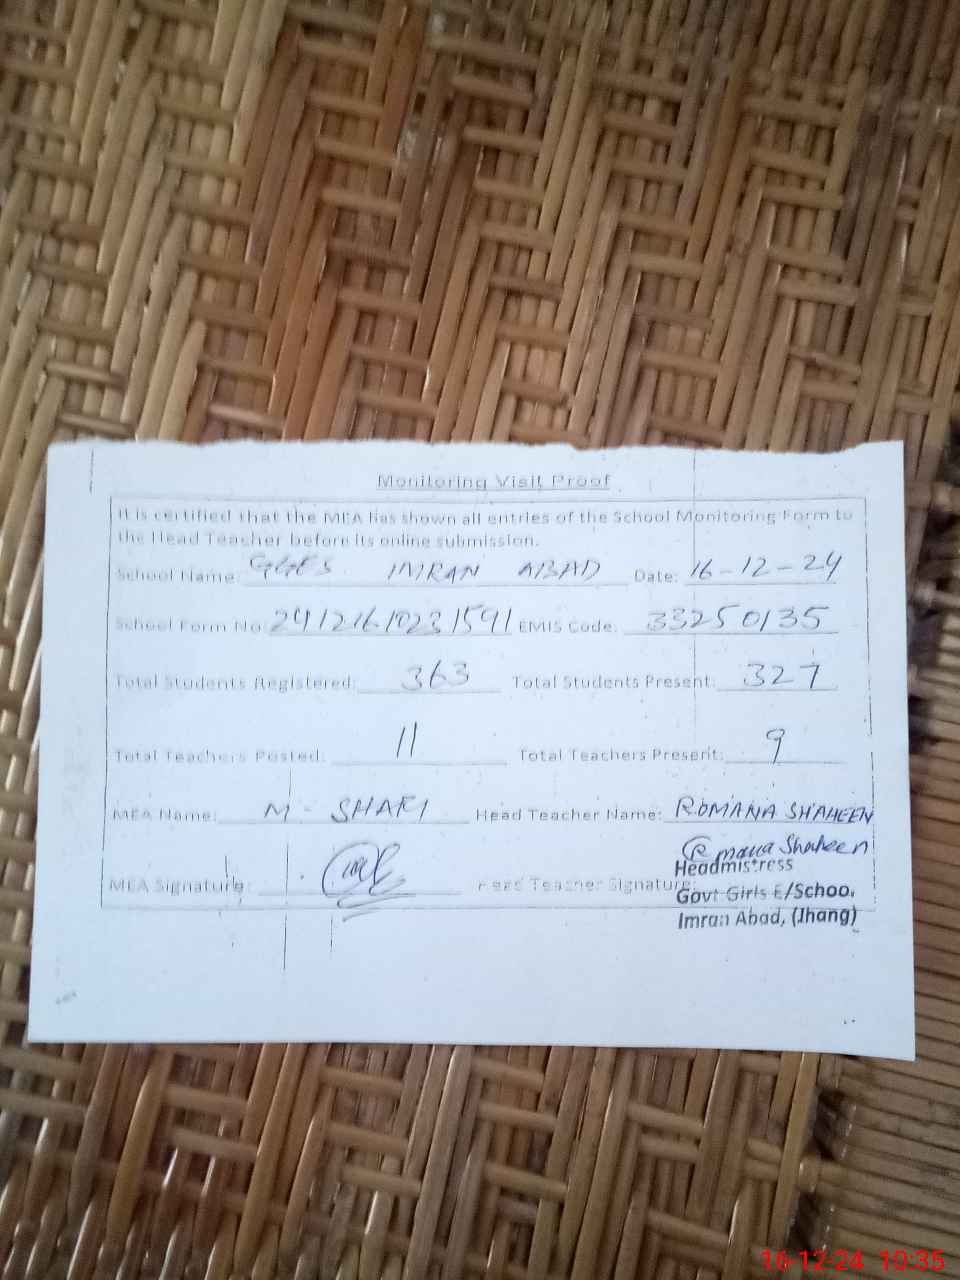 Monitoring Visit Proof
It is certified that the MEA has shown all entries of the School Monitoring Form to
the Head Teacher before its online submission.
School Name: GGES IMRAN ABAD Date: 16-12-24
School Form No: 24121610231591 EMIS Code: 33250135
Total Students Registered: 363 Total Students Present: 327
Total Teachers Posted: 11 Total Teachers Present: 9
MEA Name: M. SHAFI Head Teacher Name: ROMANA SHAHEEN
Romana Shaheen
MEA Signature: Head Teacher Signature:
Headmistress
Govt Girls E/School
Imran Abad, (Jhang)
16-12-24 10:35